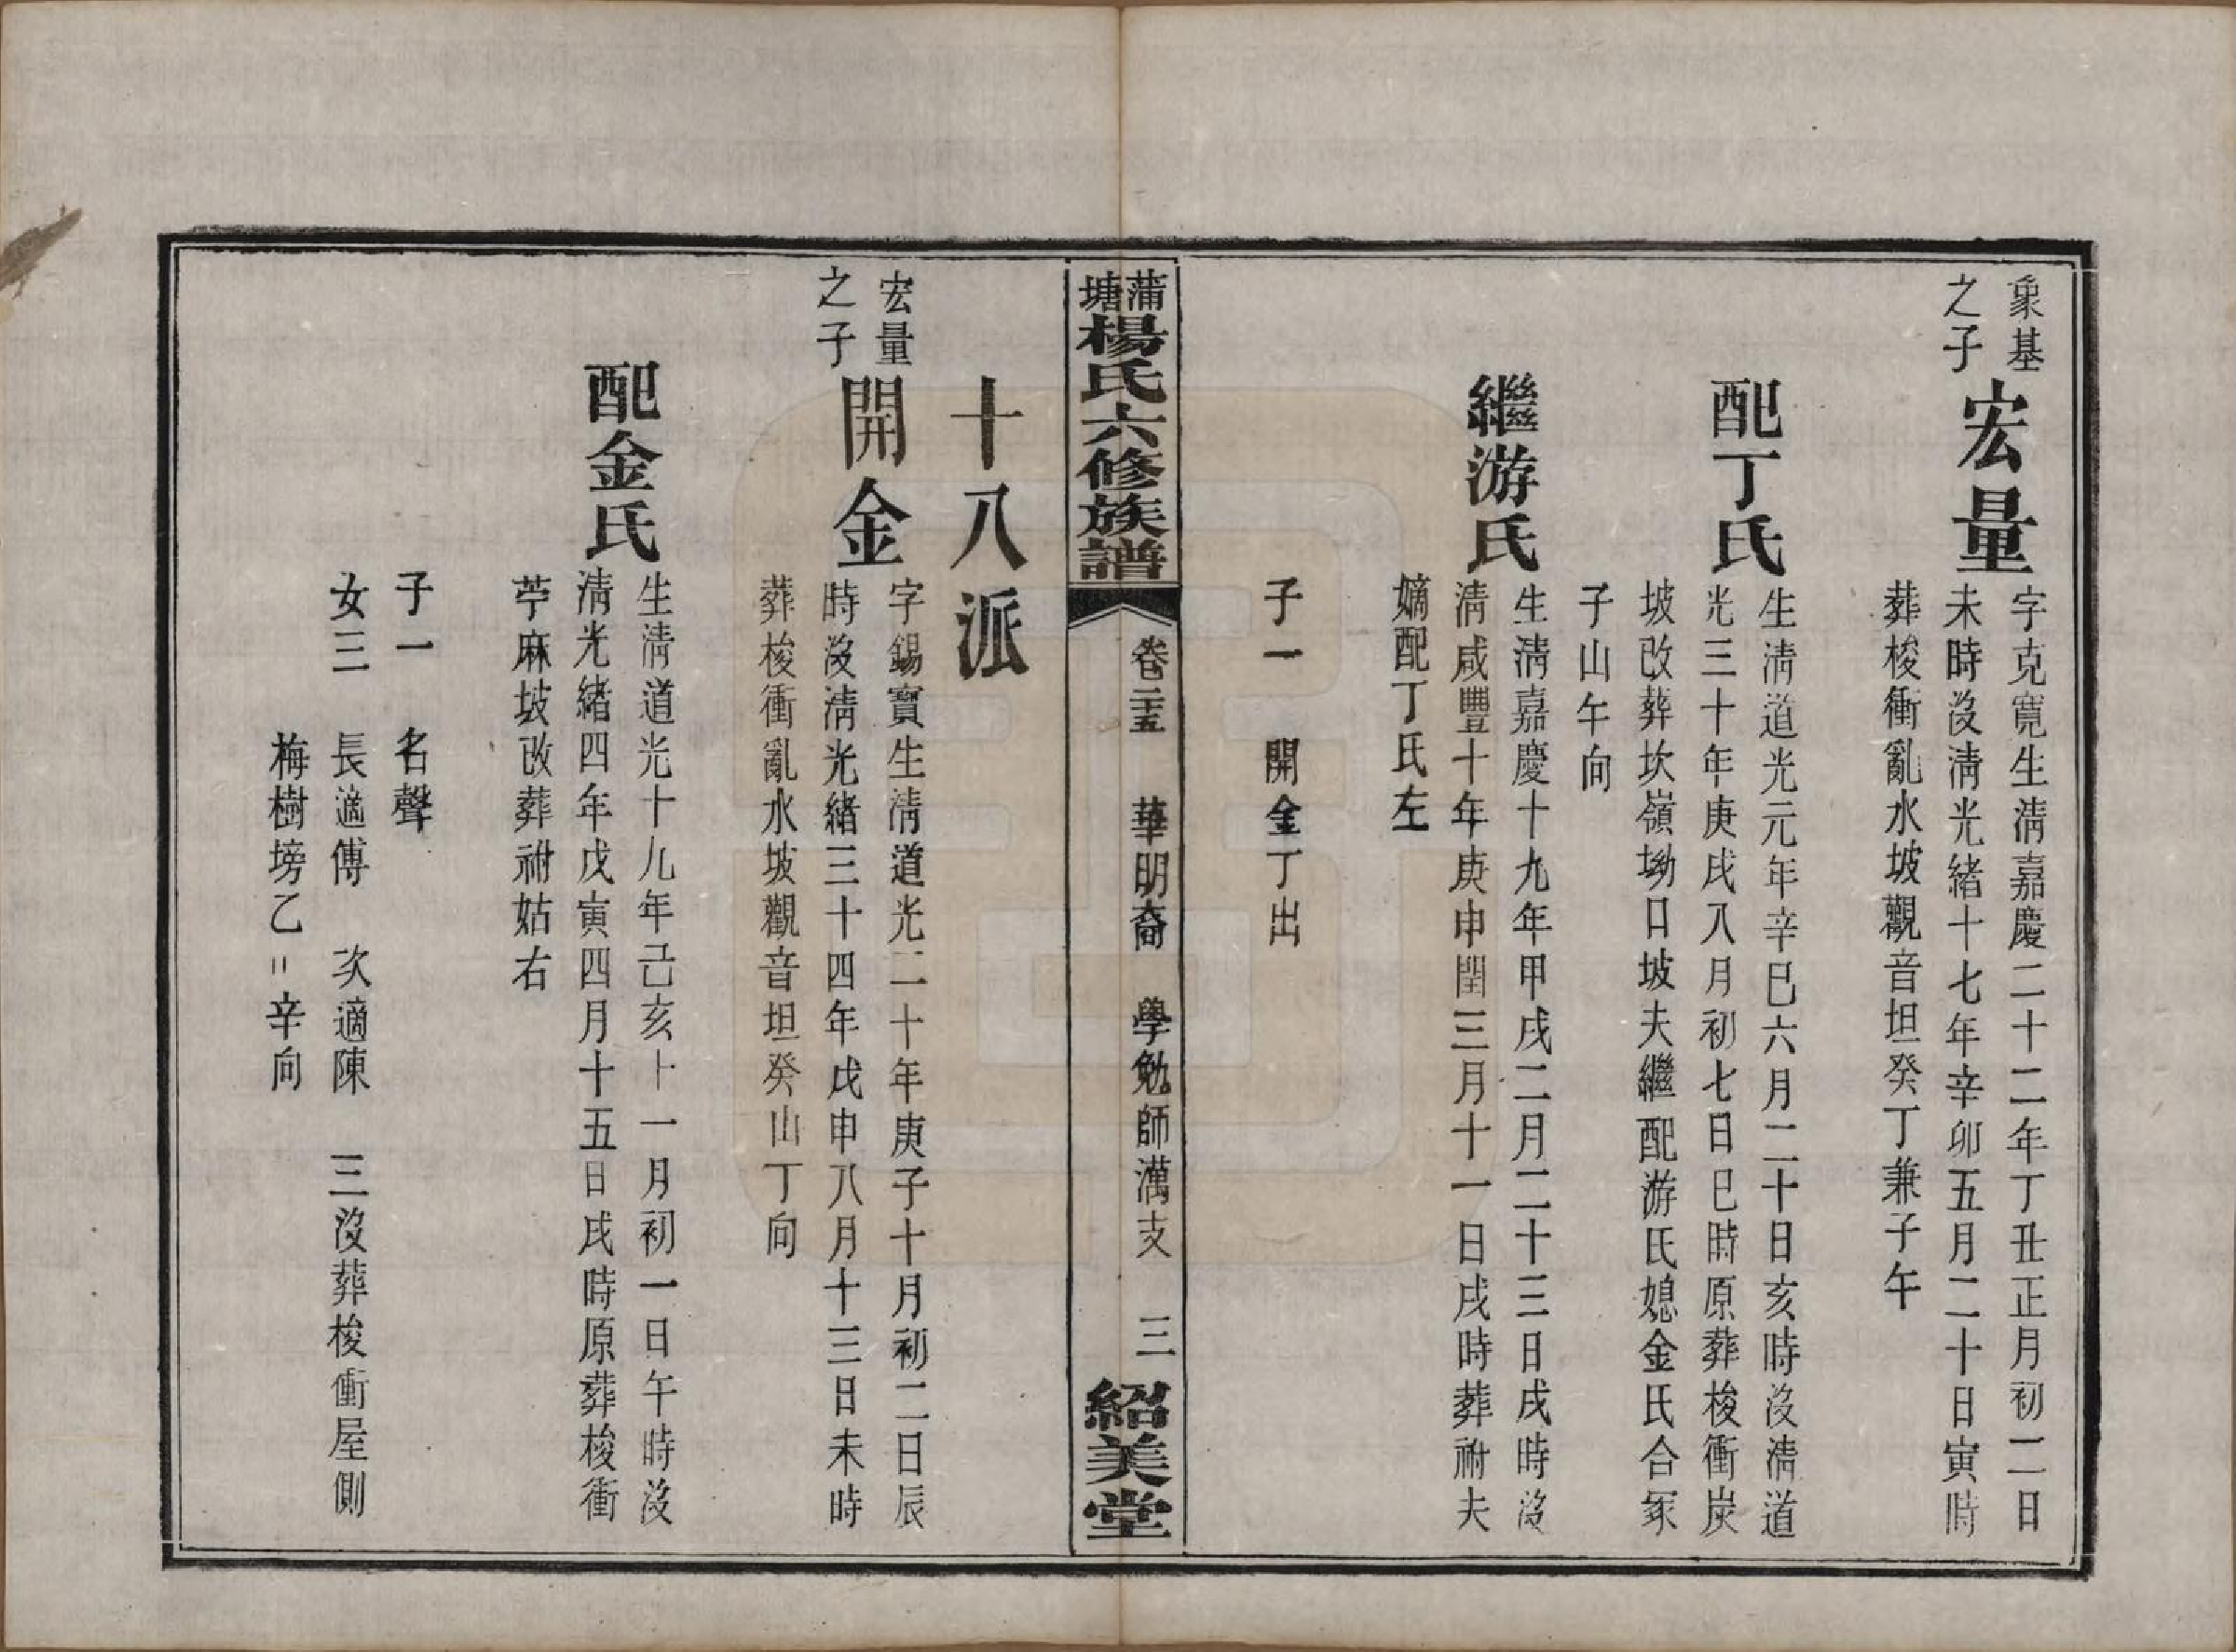 象基
之子
宏量
字克寬生淸嘉慶二十二年丁丑正月初二日
未時沒淸光緒十七年辛卯五月二十日寅時
葬梭衝亂水坡觀音坦癸丁兼子午
配丁氏
生淸道光元年辛巳六月二十日亥時沒淸道
光三十年庚戌八月初七日巳時原葬梭衝炭
坡改葬坎嶺坳口坡夫繼配游氏媳金氏合冢
子山午向
繼游氏
生淸嘉慶十九年甲戌二月二十三日戌時沒
淸咸豐十年庚申閏三月十一日戌時葬祔夫
嫡配丁氏左
子一 開金丁出
蒲塘楊氏六修族譜 卷二十五 華明裔 學勉師澫支 三 紹美堂
十八派
宏量
之子
開金
字錫寶生淸道光二十年庚子十月初二日辰
時沒淸光緒三十四年戊申八月十三日未時
葬梭衝亂水坡觀音坦癸山丁向
配金氏
生淸道光十九年己亥十一月初一日午時沒
淸光緒四年戊寅四月十五日戌時原葬梭衝
苧麻坡改葬祔姑右
子一 名聲
女三 長適傅 次適陳 三沒葬梭衝屋側
梅樹塝乙〃辛向